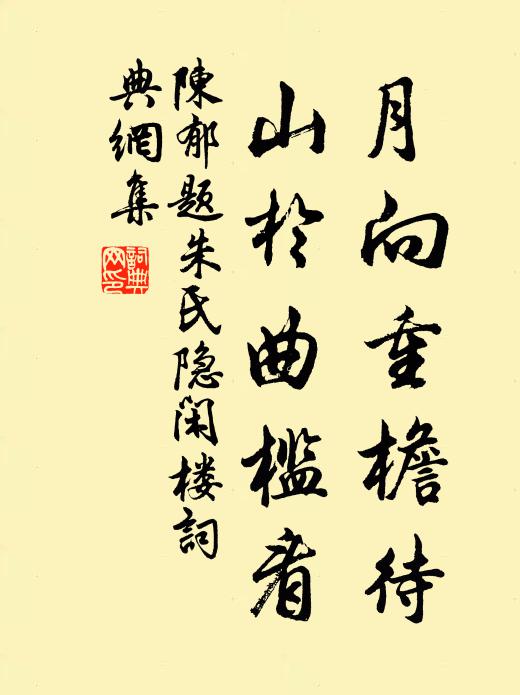 月向重檐待
山於曲檻看
陳郁题朱氏隐闲楼詞
典網集
詞典網印